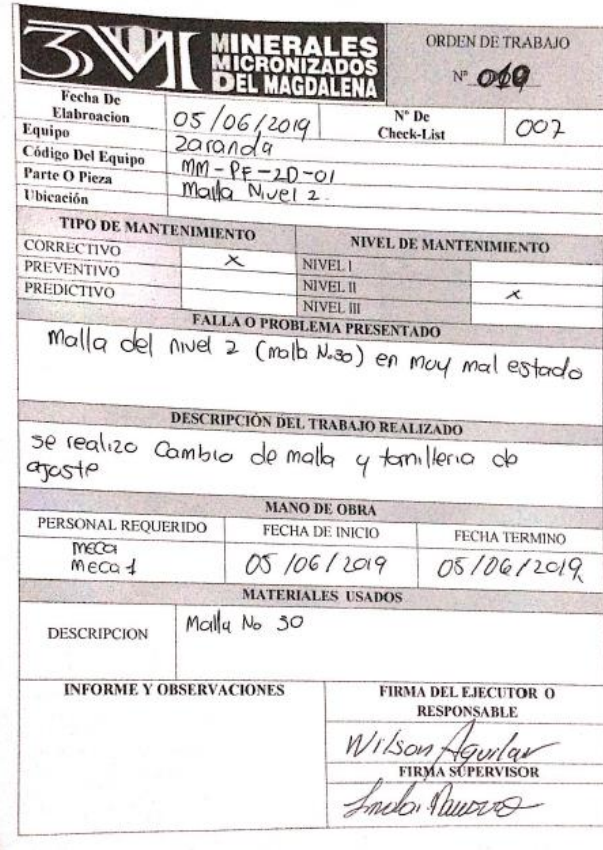 3M
MINERALES
MICRONIZADOS
DEL MAGDALENA
ORDEN DE TRABAJO
N° 019
Fecha De
Elabroacion 05/06/2019 N° De
Check-List 007
Equipo zaranda
Código Del Equipo MM-PF-ZD-01
Parte O Pieza Malla Nivel 2
Ubicación
TIPO DE MANTENIMIENTO NIVEL DE MANTENIMIENTO
CORRECTIVO x NIVEL I
PREVENTIVO NIVEL II x
PREDICTIVO NIVEL III
FALLA O PROBLEMA PRESENTADO
Malla del nivel 2 (malla No30) en muy mal estado
DESCRIPCIÓN DEL TRABAJO REALIZADO
se realizo Cambio de malla y tornilleria de
ajuste
MANO DE OBRA
PERSONAL REQUERIDO FECHA DE INICIO FECHA TERMINO
meca
Meca 1 05/06/2019 05/06/2019
MATERIALES USADOS
DESCRIPCION Malla No 30
INFORME Y OBSERVACIONES FIRMA DEL EJECUTOR O
RESPONSABLE
Wilson Aguilar
FIRMA SUPERVISOR